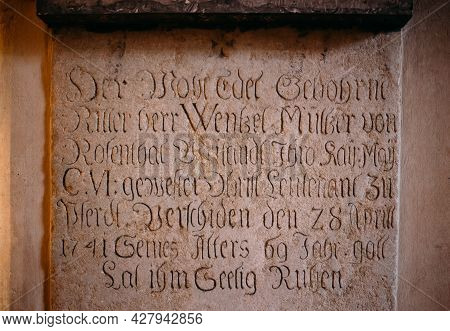 Der Wohl Edel Gebohrne
Ritter herr Wentzel Müller von
Rosenthal Ihro Kay: May
C. VI: gewester Obrist Leutenant zu
Pferdt Verschiden den 28 Aprill
1741 Seines Alters 69 Jahr. gott
Las ihm Seelig Ruhen